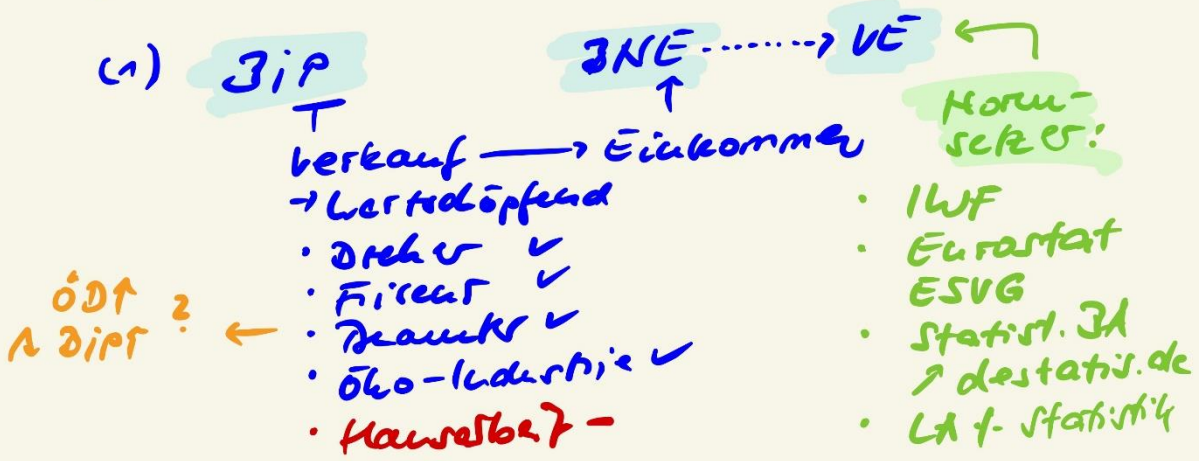 (1) BiP BNE → VE ←
Verkauf → Einkommen
Normsetzer:
→ wertschöpfend
· Dreher ✓
· Friseur ✓
· Beamter ✓
· Öko-Industrie ✓
· Hausarbeit -
ÖD↑ ?
∧ BiP↑ ←
· IWF
· Eurostat
ESVG
· Statist. BA
↗ destatis.de
· LA f. Statistik